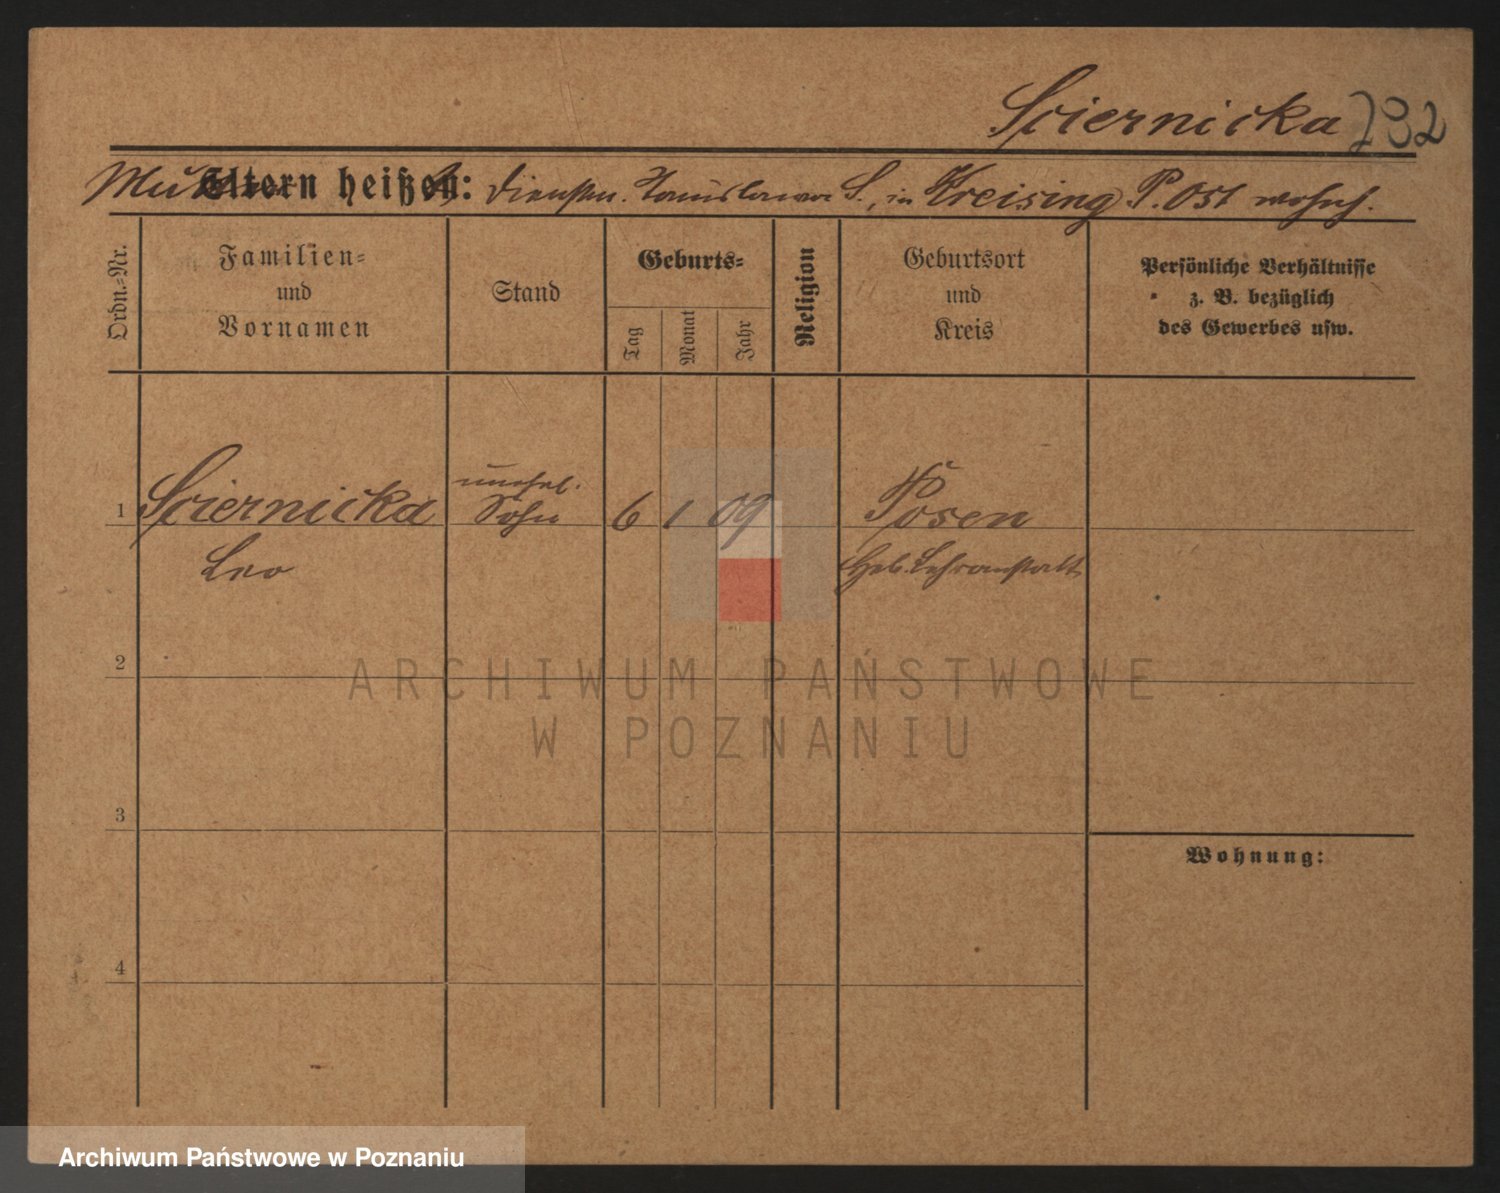 Sciernicka 732
Mutter Eltern heißen: Dienstm. Stanislawa S., in Kreising P. Ost wohnh.
Ordn.-Nr.
Familien-
und
Vornamen
Stand
Geburts-
Tag
Monat
Jahr
Religion
Geburtsort
und
Kreis
Persönliche Verhältnisse
z. B. bezüglich
des Gewerbes usw.
unehel.
1 Sciernicka Sohn 6 1 09 Posen
Leo Heb. Lehranstalt
2
ARCHIWUM PAŃSTWOWE
W POZNANIU
3
Wohnung:
4
Archiwum Państwowe w Poznaniu